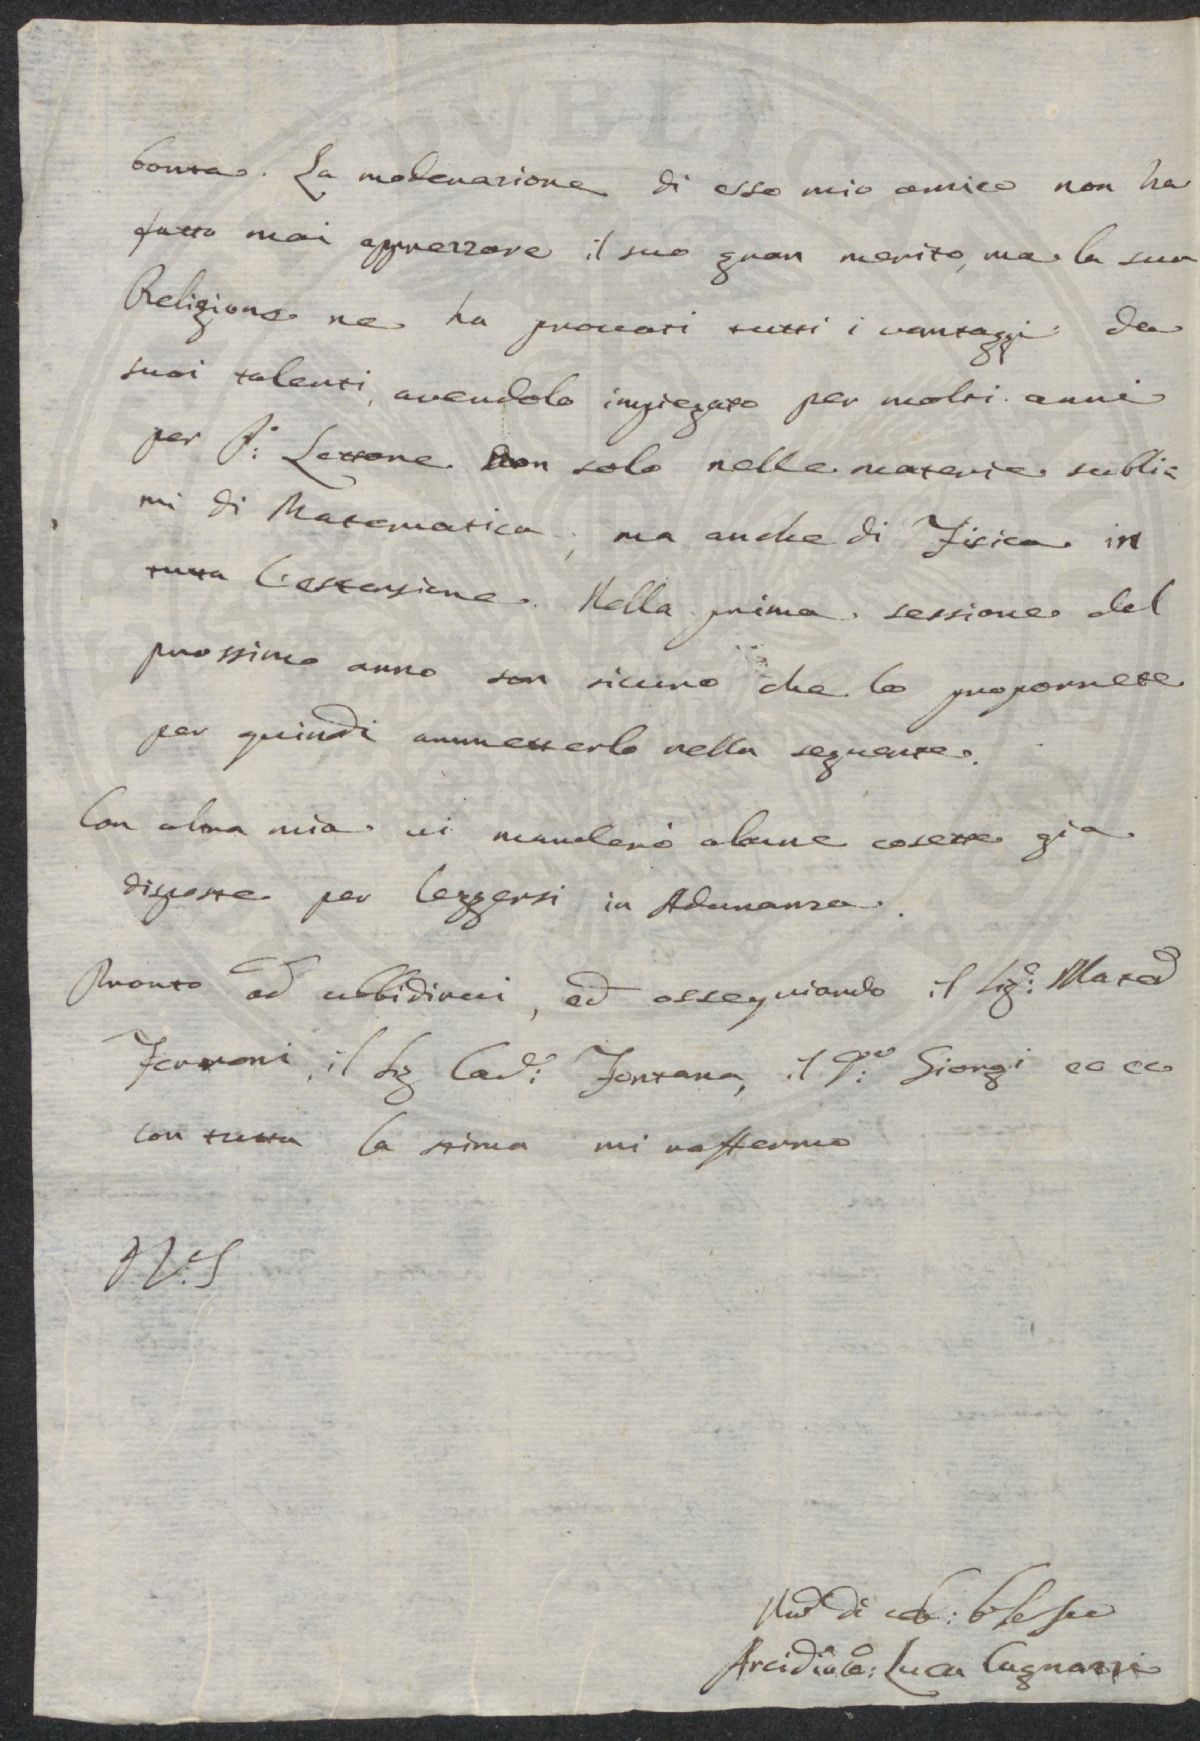 bontà. La moderazione di esso mio amico non ha
fatto mai apprezzare il suo gran merito, ma la sua
Religione ne ha procati tutti i vantaggi da
suoi talenti, avendolo impiegato per molti anni
per P: Lettore non solo nelle materie subli=
mi di Matematica, ma anche di Fisica in
tutta l'estensione. Nella prima sessione del
prossimo anno son sicuro che lo proporrete
per quindi ammetterlo nella seguente.
Con altra mia vi manderò alcune cosette già
disposte per leggersi in Adunanza.
Pronto ad ubbidirvi, ed ossequiando il Sig:e Mated
Ferroni, il Sig Cav:e Fontana, il P: Giorgi ec ec
con tutta la stima mi raffermo
di
Arcidiaco: Luca Cagnazzi
PVBLIC